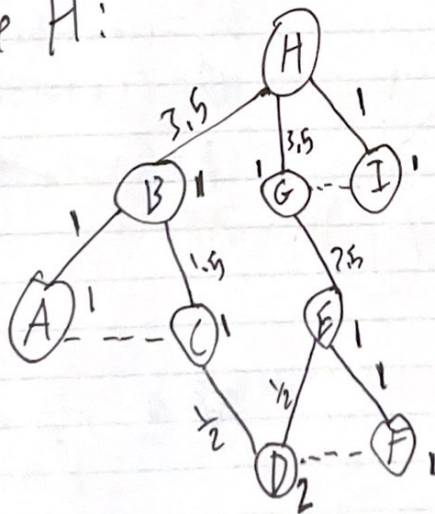 e H:
H
3,5
3,5
1
B 1
1 G
I 1
1
1.5
2.5
A 1
C 1
E 1
1/2
1/2
1
D 2
F 1